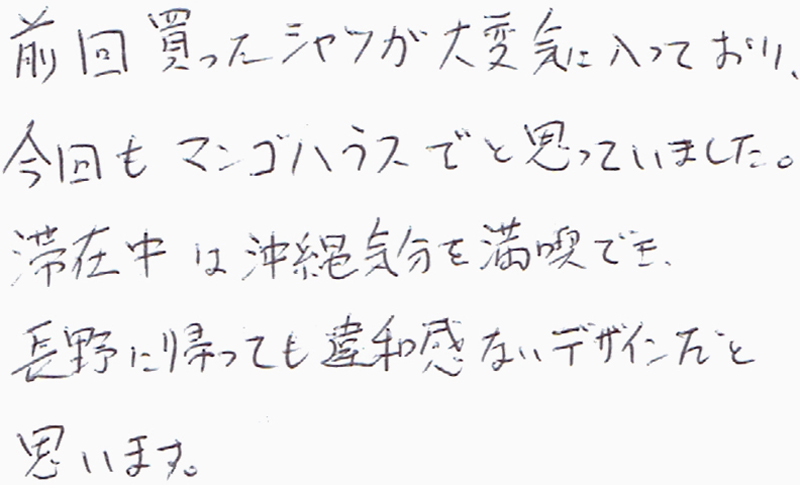 前回買ったシャツが大変気に入っており、
今回もマンゴハウスでと思っていました。
滞在中は沖縄気分を満喫でき、
長野に帰っても違和感ないデザインだと
思います。